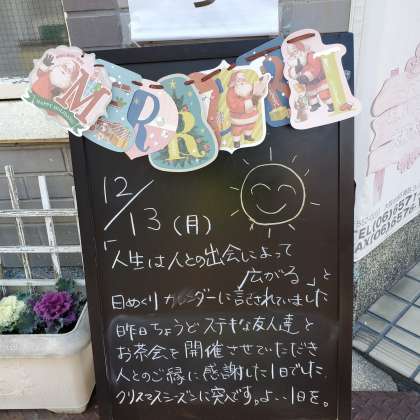 MERRY
HAPPY HOLIDAY
12/13(月)
「人生は人との出会によって
広がる」と
日めくりカレンダーに記されていました
昨日ちょうどステキな友人達と
お茶会を開催させていただき
人とのご縁に感謝した1日でした
クリスマスシーズンに突入です。よい1日を。
TEL(06)657
FAX(06)657